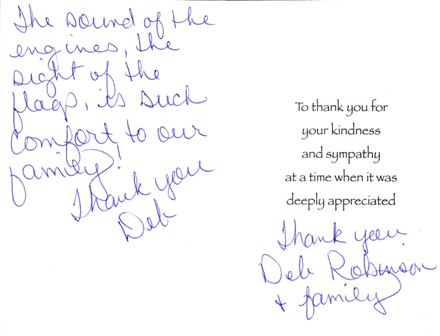 The sound of the
engines, the
sight of the
flags, is such
comfort, to our
family!
Thank you
Deb
To thank you for
your kindness
and sympathy
at a time when it was
deeply appreciated
Thank you
Deb Robinson
+ family